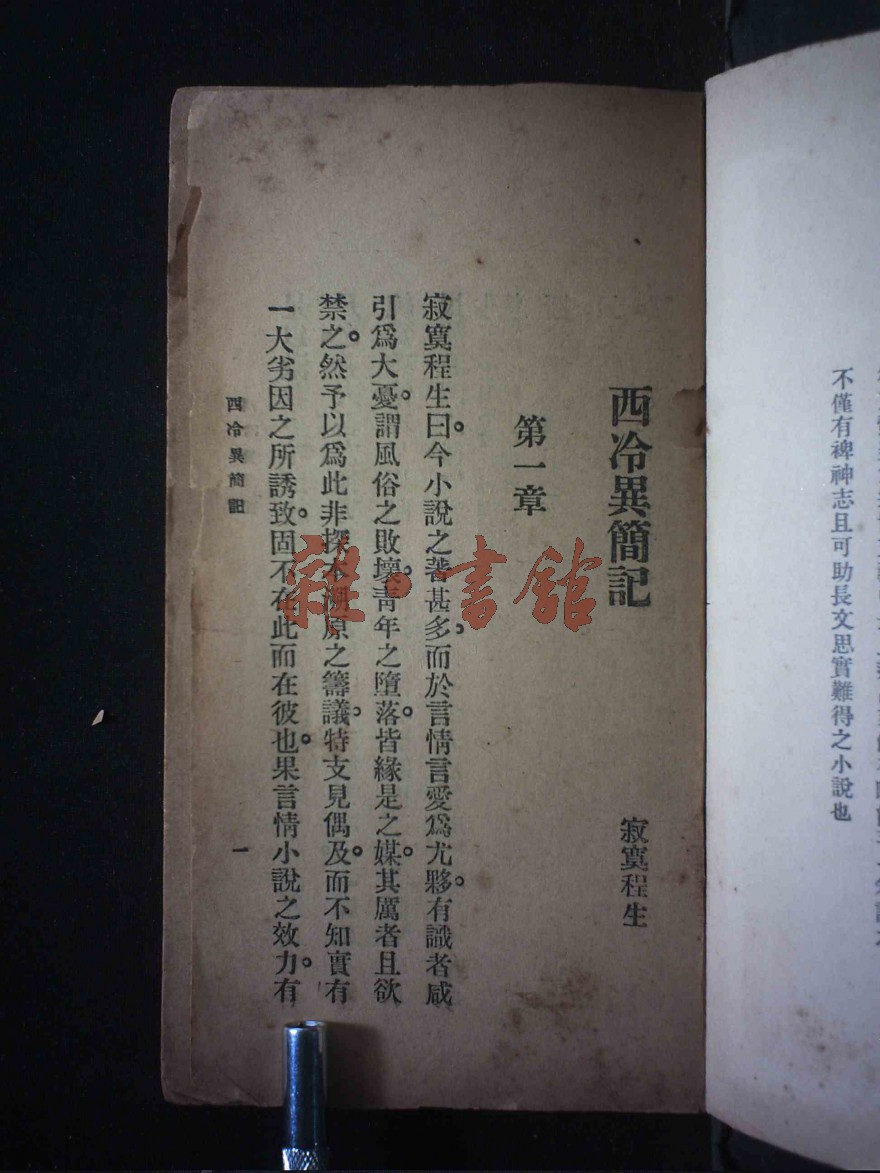 不僅有裨神志且可助長文思實難得之小說也
西泠異簡記
寂寞程生
第一章
寂寞程生曰。今小說之著甚多。而於言情言愛爲尤夥。有識者咸
引爲大憂。謂風俗之敗壞。靑年之墮落。皆緣是之媒。其厲者且欲
禁之。然予以爲此非探本溯原之籌議。特支見偶及。而不知實有
一大劣因之所誘致。固不在此而在彼也。果言情小說之效力。有
西泠異簡記
一
雜·書館